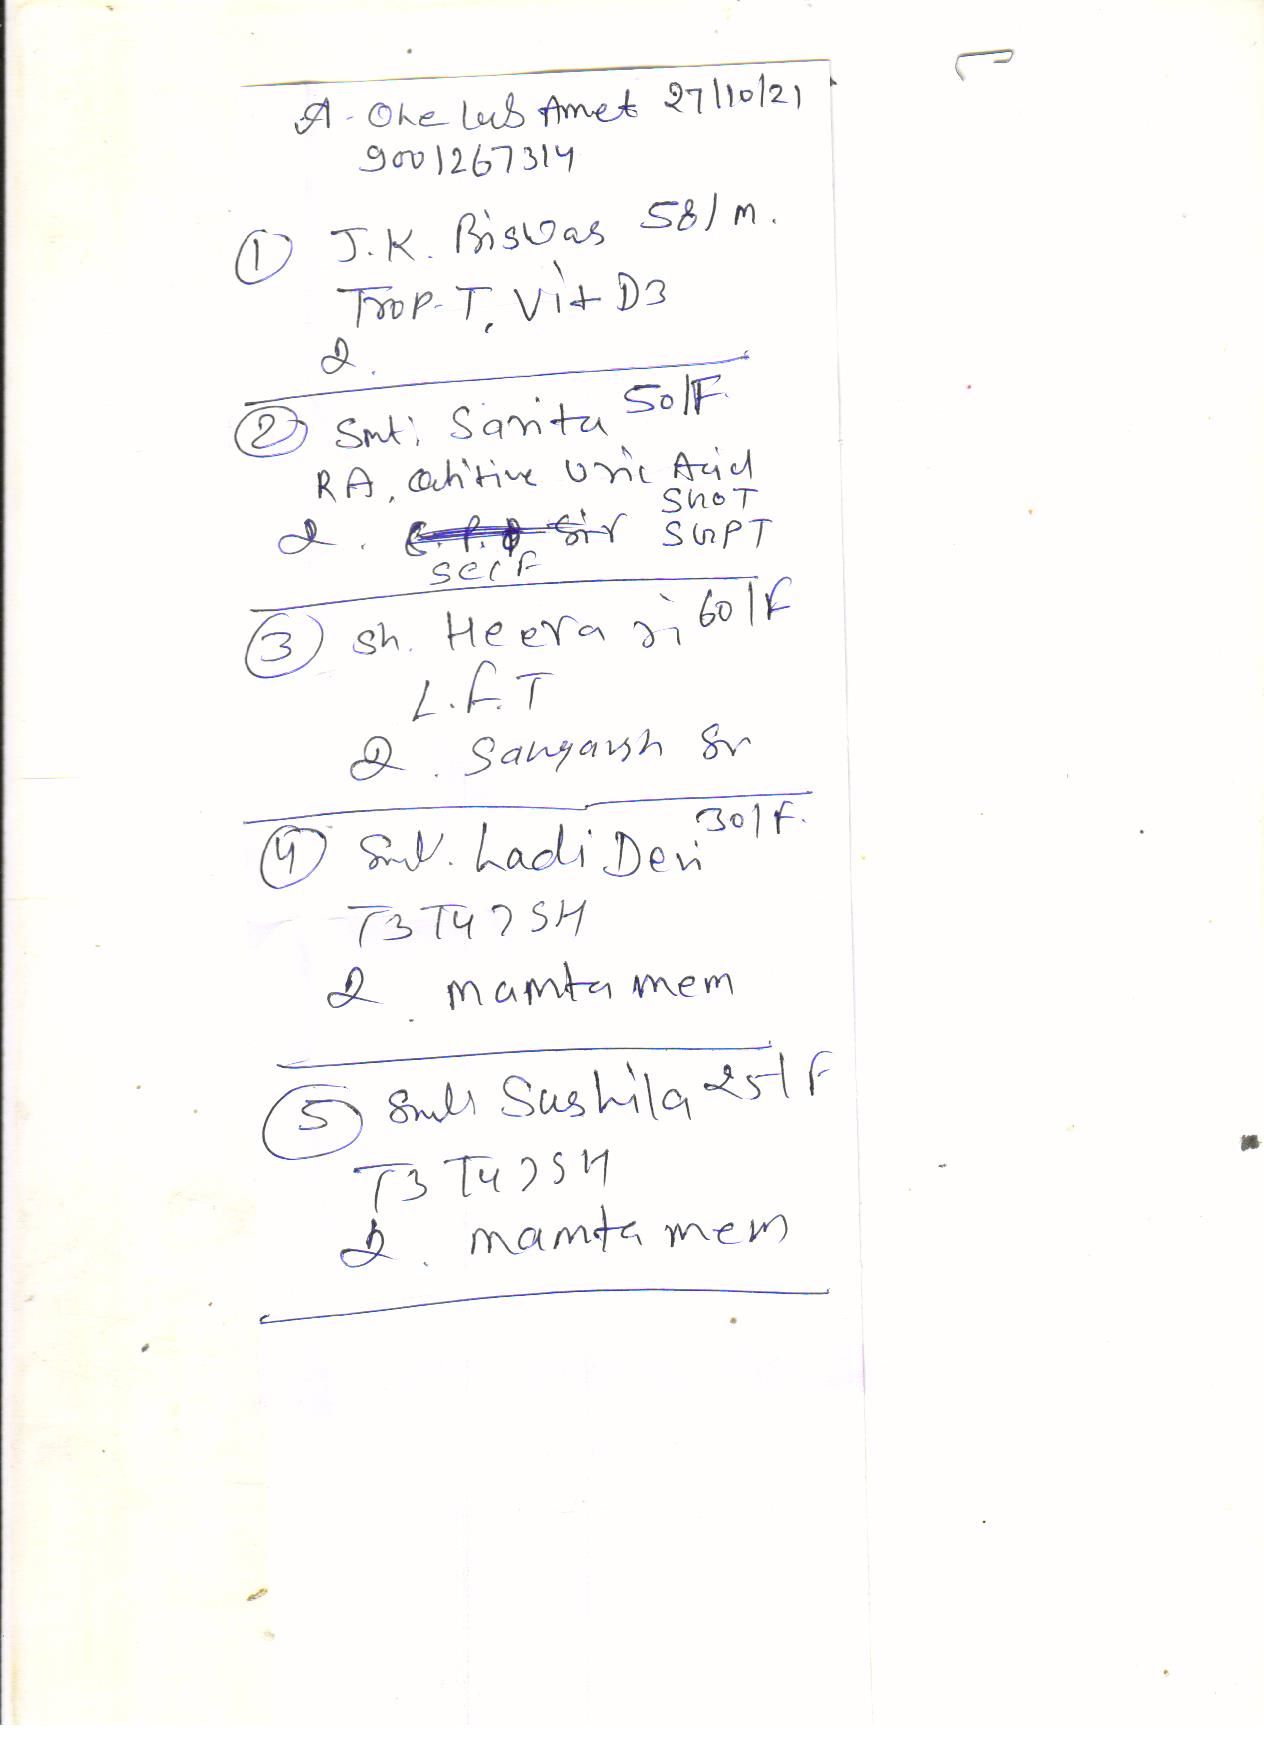 A-One Lab Amet 27/10/21
9001267314
① J.K. Biswas 58/M.
Trop-T, Vit D3
② Smt. Sarita 50/F.
RA, Uric Acid
SGOT
SGPT
self
③ Sh. Heera Ji 60/F
L.F.T
Sangarsh Sr
④ Smt. Ladi Devi 30/F.
T3 T4 TSH
mamta mem
⑤ Smt. Sushila 25/F
T3 T4 TSH
mamta mem